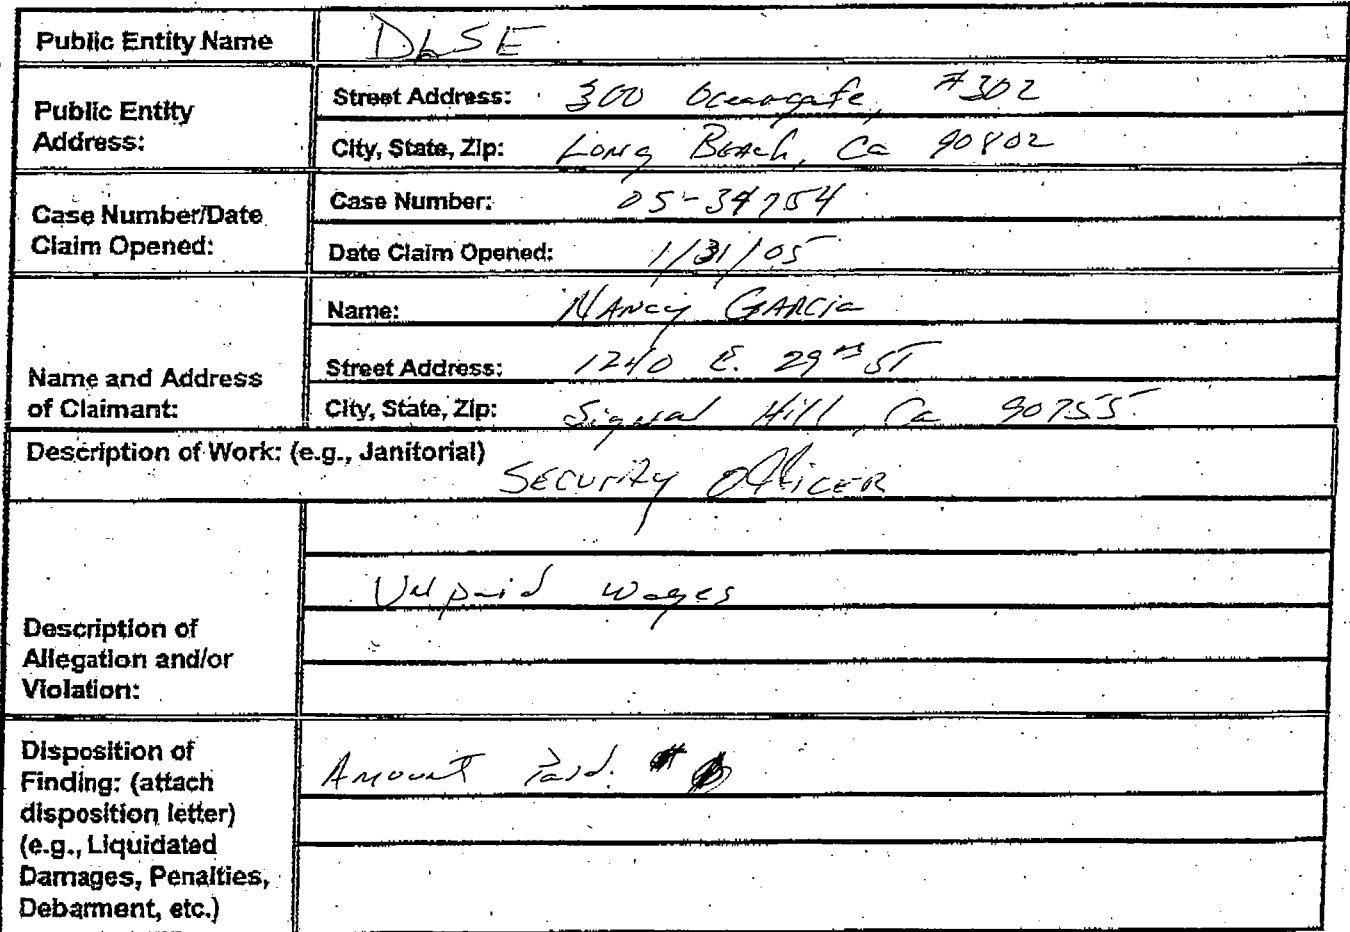 Public Entity Name DLSE
Public Entity Address:
Street Address: 300 Oceangate, #302
City, State, Zip: Long Beach, Ca 90802
Case Number/Date Claim Opened:
Case Number: 05-34754
Date Claim Opened: 1/31/05
Name and Address of Claimant:
Name: Nancy Garcia
Street Address: 1240 E. 29th ST
City, State, Zip: Signal Hill, Ca 90755
Description of Work: (e.g., Janitorial)
Security Officer
Description of Allegation and/or Violation:
Unpaid wages
Disposition of
Finding: (attach
disposition letter)
(e.g., Liquidated
Damages, Penalties,
Debarment, etc.)
Amount Paid.